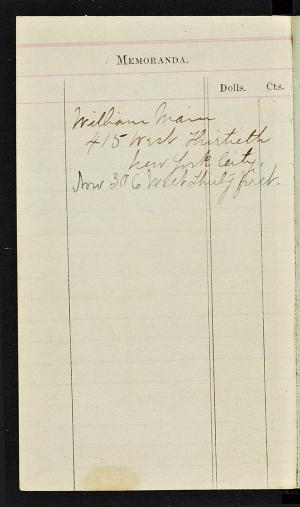 MEMORANDA.
Dolls. Cts.
William Mann
415 West Thirtieth
New York City,
Now 306 West Thirty first.